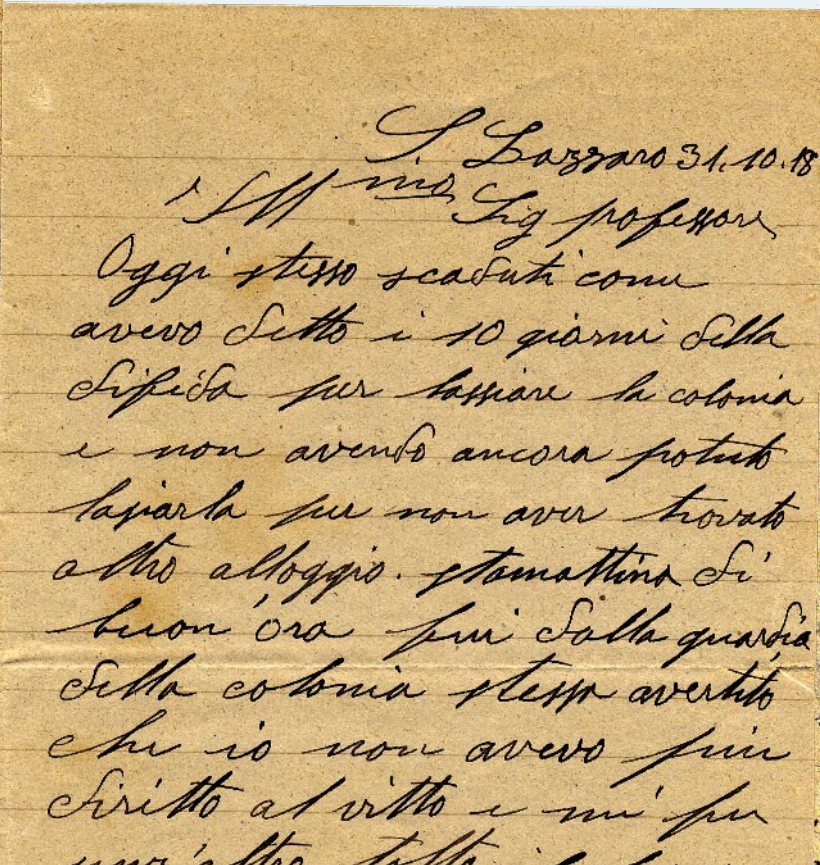 S. Lazzaro 31.10.18
Ill mo Sig professore
Oggi stesso scaduti come
avevo detto i 10 giorni della
difida per lassiare la colonia
e non avendo ancora potuto
lasiarla per non aver trovato
altro alloggio. stamattina di
buon'ora fui dalla guardia
della colonia stessa avertito
che io non avevo piu
diritto al vitto e mi fu